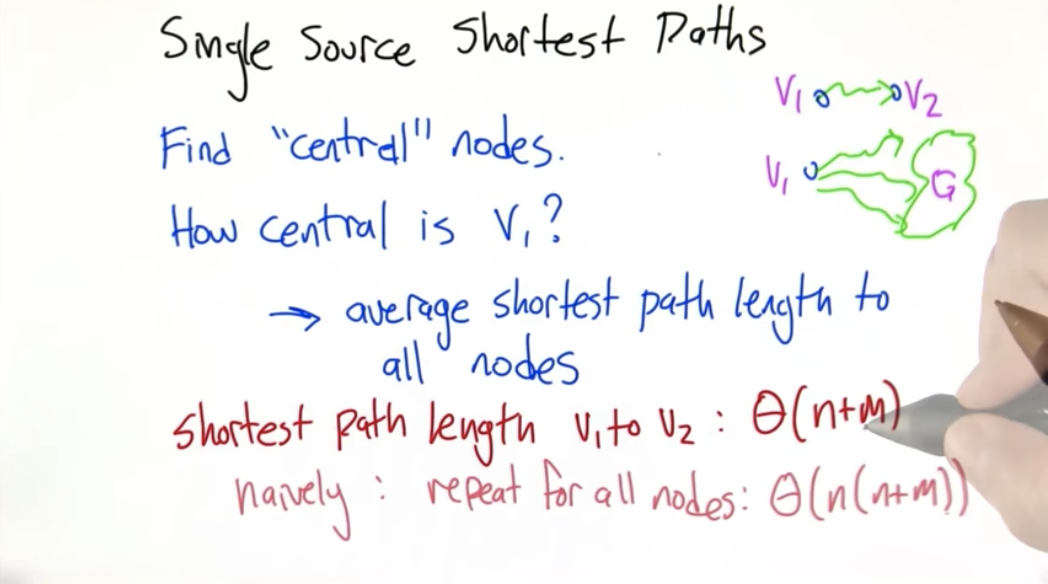 Single Source Shortest Paths
V₁ V₂
Find "central" nodes.
V₁ G
How central is V₁?
→ average shortest path length to
all nodes
shortest path length v₁ to v₂ : Θ(n+m)
naively : repeat for all nodes: Θ(n(n+m))